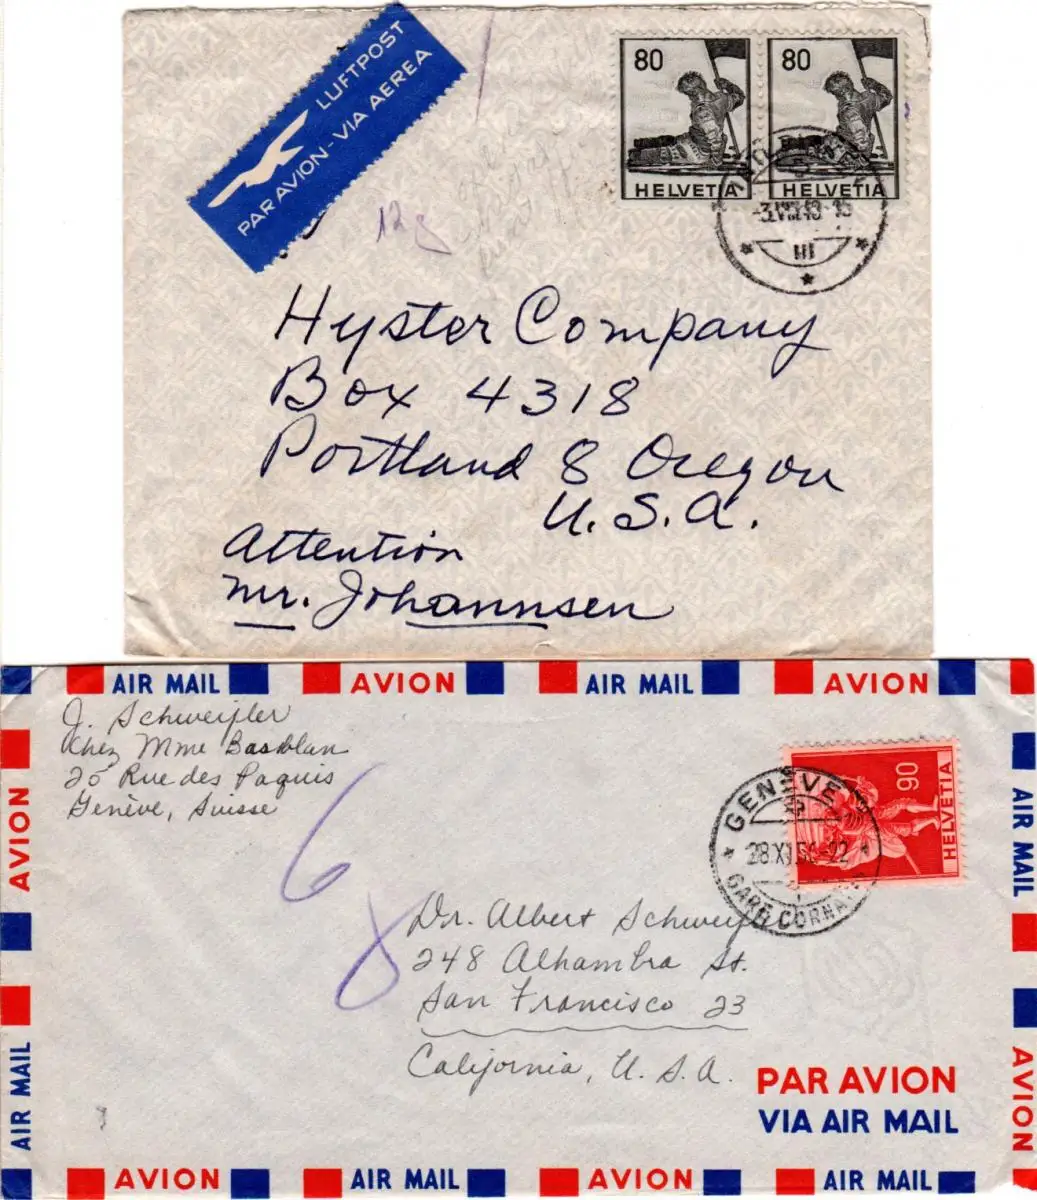 LUFTPOST
PAR AVION - VIA AEREA
80 80
HELVETIA HELVETIA
III
12g
Hyster Company
Box 4318
Portland 8 Oregon
U.S.A.
Attention
Mr. Johannsen
AIR MAIL AVION AIR MAIL AVION
J. Schweifler
Chez Mme
20 Rue des Paquis
Genève, Suisse
90
HELVETIA
GENÈVE
GARE CORNAVIN
6
Dr. Albert
248 Alhambra St.
San Francisco 23
California, U.S.A.
PAR AVION
VIA AIR MAIL
AVION
AIR MAIL
AIR MAIL
AVION
AVION AIR MAIL AVION AIR MAIL